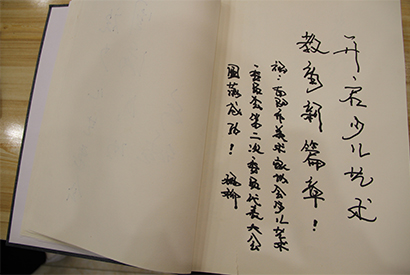 开启少儿艺术
教育新篇章！
祝：市美术家协会少儿艺术
委员会第二次委员代表大会
圆满成功！